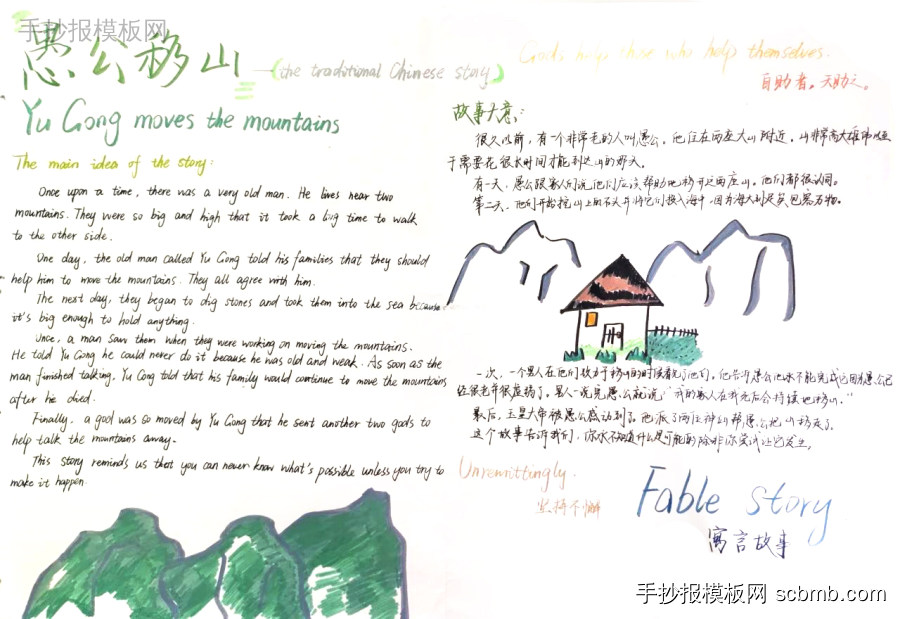 手抄报模板网
愚公移山
(the traditional Chinese story)
Gods help those who help themselves.
自助者，天助之。
Yu Gong moves the mountains
The main idea of the story:
Once upon a time, there was a very old man. He lives near two
mountains. They were so big and high that it took a long time to walk
to the other side.
One day, the old man called Yu Gong told his families that they should
help him to move the mountains. They all agree with him.
The next day, they began to dig stones and took them into the sea because
it's big enough to hold anything.
Once, a man saw them when they were working on moving the mountains.
He told Yu Gong he could never do it because he was old and weak. As soon as the
man finished talking, Yu Gong told that his family would continue to move the mountains
after he died.
Finally, a god was so moved by Yu Gong that he sent another two gods to
help talk the mountains away.
This story reminds us that you can never know what's possible unless you try to
make it happen.
故事大意：
很久以前，有一个非常老的人叫愚公。他住在两座大山附近，山非常高大雄伟以至
于需要花很长时间才能到达山的那头。
有一天，愚公跟家人们说他们应该帮助他移开这两座山。他们都很认同。
第二天，他们开始挖山上的石头并将它们投入海中，因为海大到足矣包容万物。
一次，一个男人在他们致力于移山的时候看见了他们。他告诉愚公他永不能完成它因为愚公已
经很老并很虚弱了。男人一说完愚公就说："我的家人在我死后会持续地移山。"
最后，玉皇大帝被愚公感动到了。他派了两位神仙帮愚公把山移走了。
这个故事告诉我们，你永不知道什么是可能的除非你尝试让它发生。
Unremittingly.
坚持不懈
Fable story
寓言故事
手抄报模板网 scbmb.com